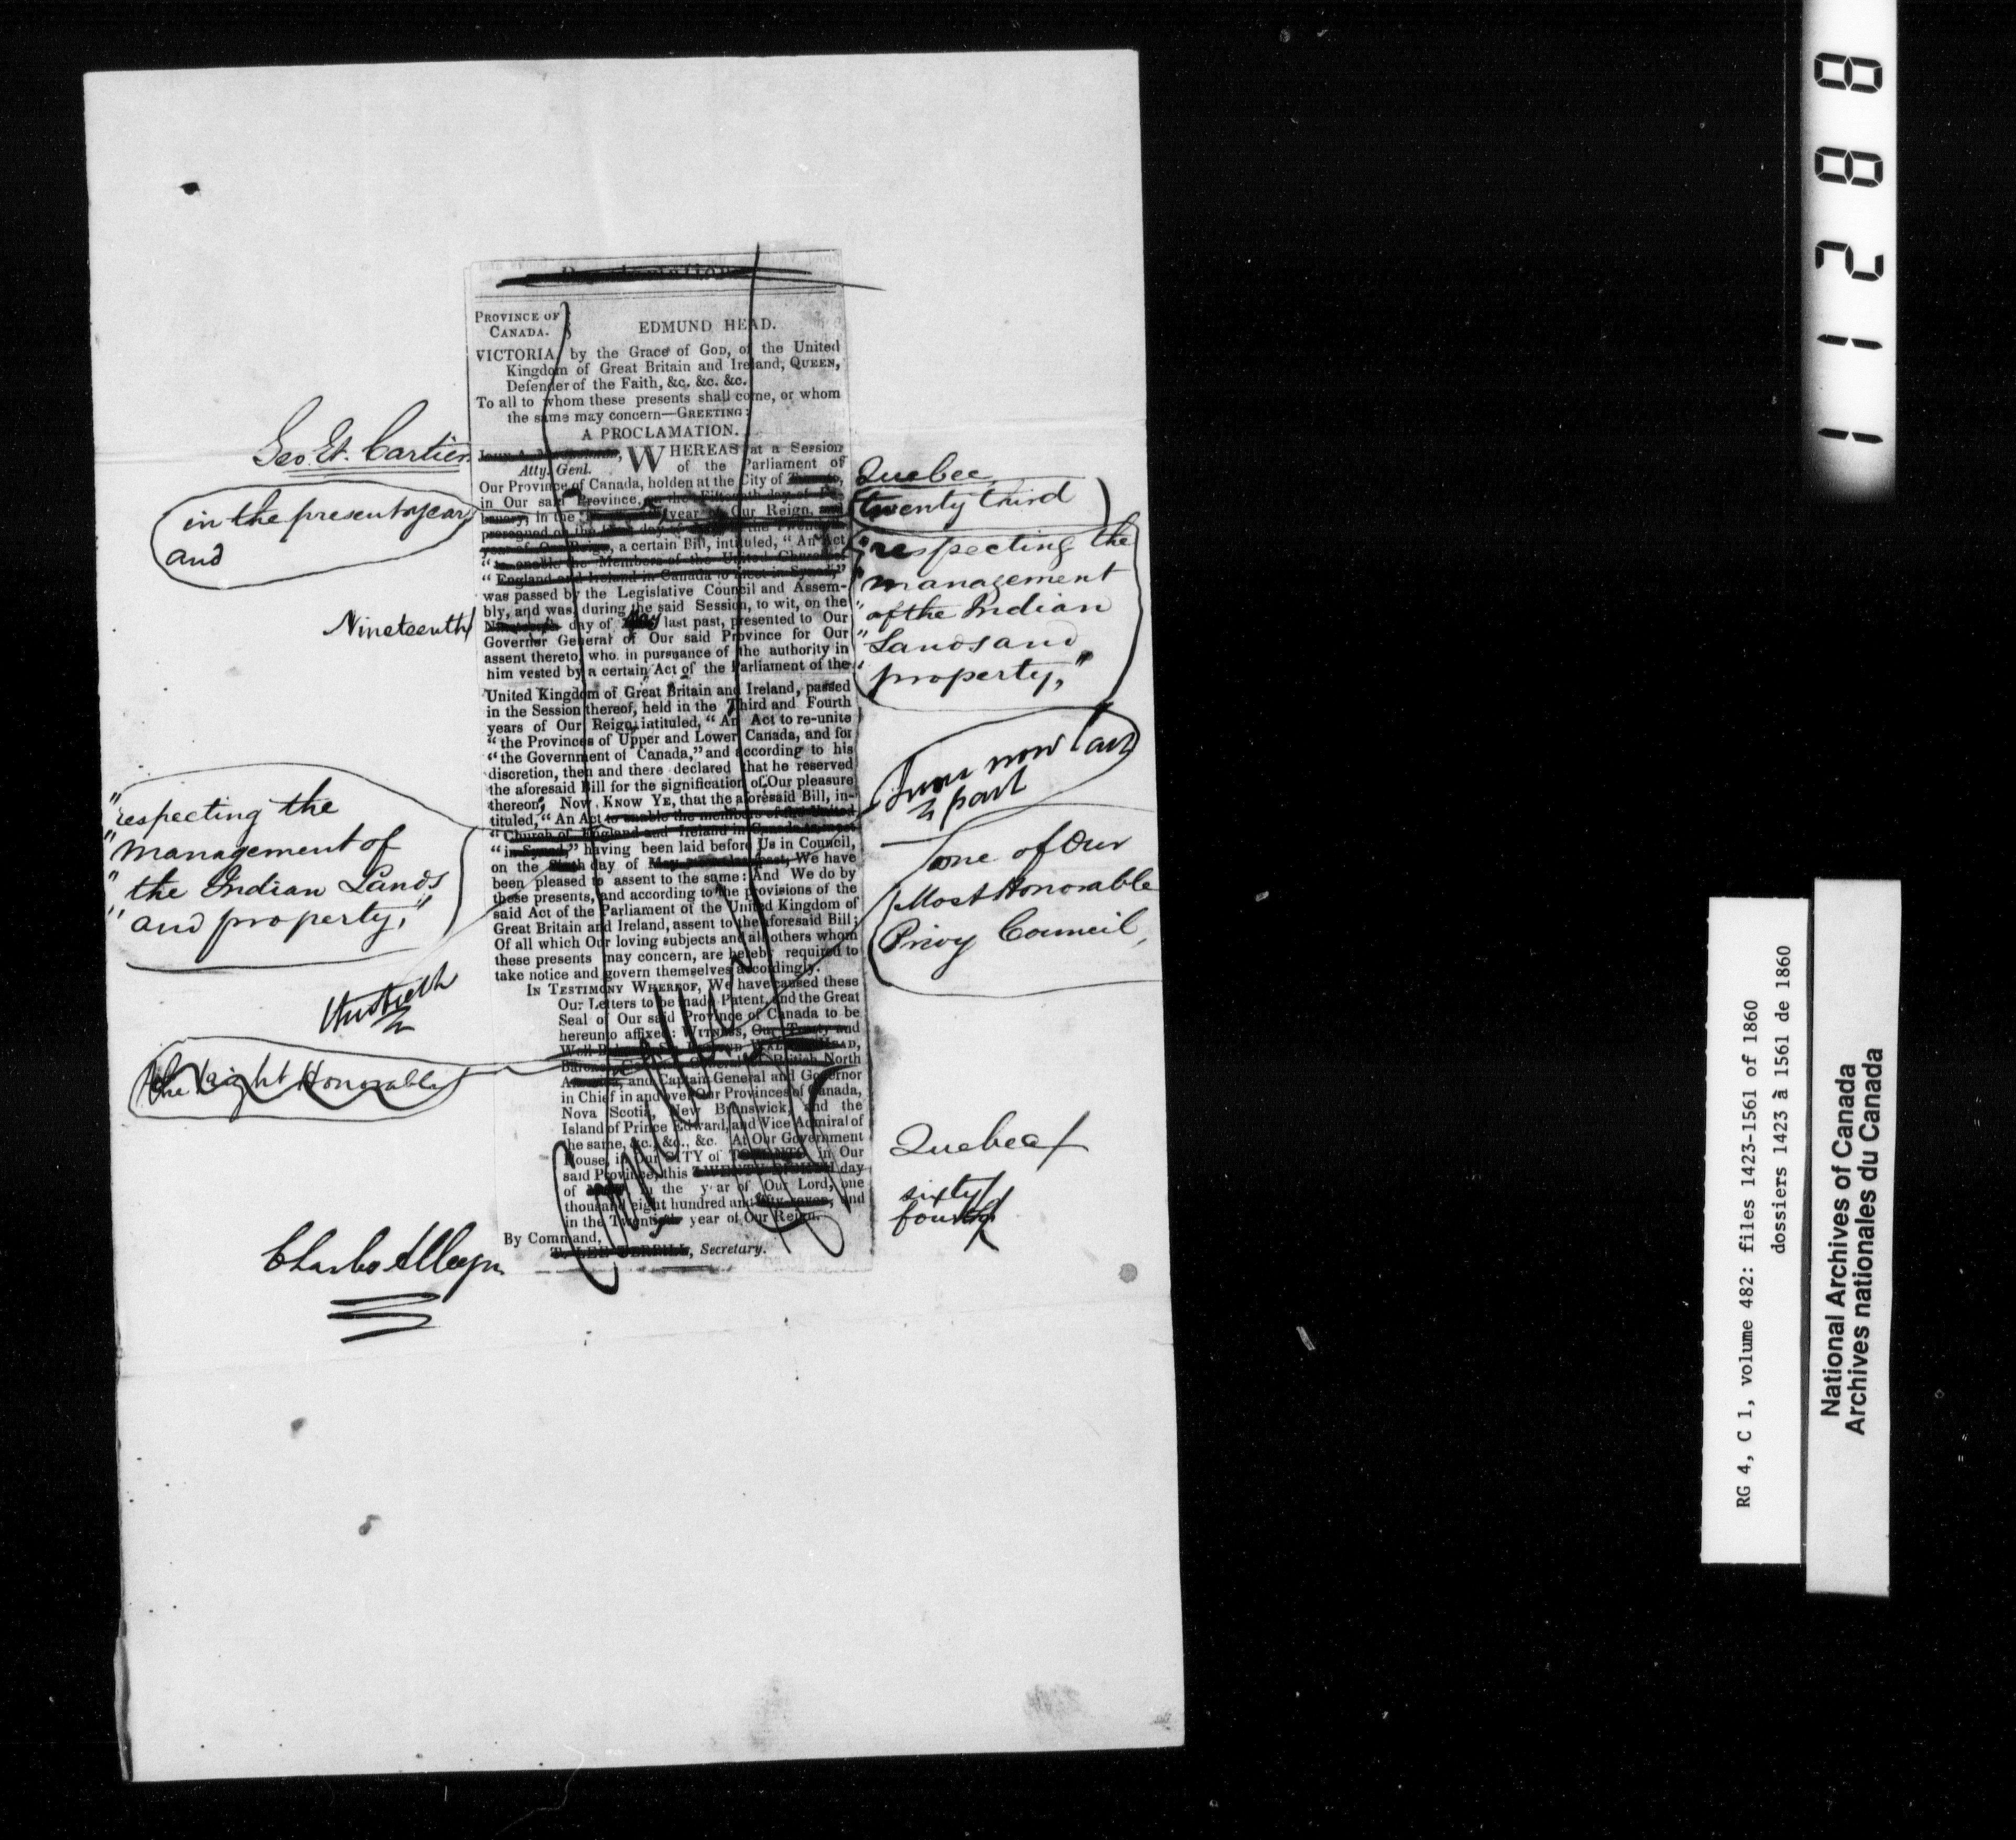 Proclamation
PROVINCE OF
CANADA.
EDMUND HEAD.
VICTORIA, by the Grace of GOD, of the United
Kingdom of Great Britain and Ireland, QUEEN,
Defender of the Faith, &c. &c. &c.
To all to whom these presents shall come, or whom
the same may concern—GREETING:
A PROCLAMATION.
Geo. Et. Cartier
Atty. Genl.
WHEREAS at a Session
of the Parliament of
Our Province of Canada, holden at the City of
Quebec
in Our said Province, on the Fifteenth day of Fe-
in the present year
and
bruary, in the year of Our Reign, and
twenty third
prorogued on the day of the
year of Our Reign, a certain Bill, intituled, "An Act
"to enable the Members of the United Church of
"England and Ireland in Canada to meet in Synod,"
"respecting the
"management
"of the Indian
"Lands and
"property,"
was passed by the Legislative Council and Assem-
bly, and was, during the said Session, to wit, on the
Nineteenth
day of May last past, presented to Our
Governor General of Our said Province for Our
assent thereto, who in pursuance of the authority in
him vested by a certain Act of the Parliament of the
United Kingdom of Great Britain and Ireland, passed
in the Session thereof, held in the Third and Fourth
years of Our Reign, intituled, "An Act to re-unite
"the Provinces of Upper and Lower Canada, and for
"the Government of Canada," and according to his
discretion, then and there declared that he reserved
the aforesaid Bill for the signification of Our pleasure
thereon; Now KNOW YE, that the aforesaid Bill, in-
tituled, "An Act to enable the members of the United
"Church of England and Ireland in Canada to meet
"in Synod," having been laid before Us in Council,
"respecting the
"management of
"the Indian Lands
"and property,"
on the day of May now last past, We have
June now last
past
one of Our
Most Honorable
Privy Council,
been pleased to assent to the same: And We do by
these presents, and according to the provisions of the
said Act of the Parliament of the United Kingdom of
Great Britain and Ireland, assent to the aforesaid Bill;
Of all which Our loving subjects and all others whom
these presents may concern, are hereby required to
take notice and govern themselves accordingly.
IN TESTIMONY WHEREOF, We have caused these
Our Letters to be made Patent, and the Great
Seal of Our said Province of Canada to be
hereunto affixed: WITNESS, Our Trusty and
The Right Honorable
Well-Beloved Sir EDMUND WALKER HEAD,
Baronet, Governor General of British North
America, and Captain General and Governor
in Chief in and over Our Provinces of Canada,
Nova Scotia, New Brunswick, and the
Island of Prince Edward, and Vice Admiral of
the same, &c., &c., &c. At Our Government
House, in Our CITY of TORONTO, in Our
Quebec
said Province, this day
of in the year of Our Lord, one
thousand eight hundred and fifty-seven, and
sixty
in the Twentieth year of Our Reign.
fourth
By Command,
Charles Alleyn
T. LEE TERRILL, Secretary.
Cancelled
11288
RG 4, C 1, volume 482: files 1423-1561 of 1860
dossiers 1423 à 1561 de 1860
National Archives of Canada
Archives nationales du Canada